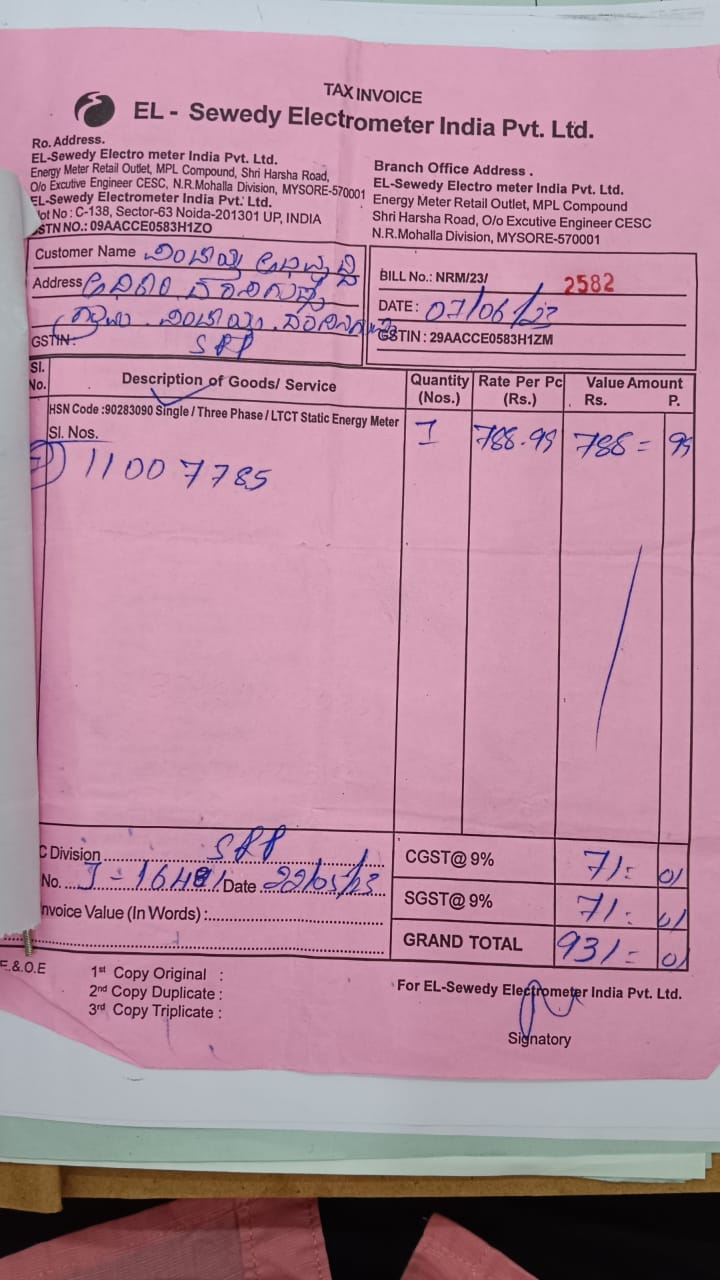 TAX INVOICE
EL - Sewedy Electrometer India Pvt. Ltd.
Ro. Address.
EL-Sewedy Electro meter India Pvt. Ltd.
Energy Meter Retail Outlet, MPL Compound, Shri Harsha Road,
O/o Excutive Engineer CESC, N.R.Mohalla Division, MYSORE-570001
EL-Sewedy Electrometer India Pvt. Ltd.
lot No : C-138, Sector-63 Noida-201301 UP, INDIA
STN NO.: 09AACCE0583H1ZO
Branch Office Address .
EL-Sewedy Electro meter India Pvt. Ltd.
Energy Meter Retail Outlet, MPL Compound
Shri Harsha Road, O/o Excutive Engineer CESC
N.R.Mohalla Division, MYSORE-570001
Customer Name
Address
GSTIN: SRP
BILL No.: NRM/23/ 2582
DATE : 07/06/23
GSTIN : 29AACCE0583H1ZM
Sl. No. Description of Goods/ Service Quantity (Nos.) Rate Per Pc (Rs.) Value Amount Rs. P.
HSN Code :90283090 Single / Three Phase / LTCT Static Energy Meter 1 788.99 788= 99
Sl. Nos.
11007785
C Division SRP
No. Date 22/05/23
nvoice Value (In Words) :
CGST@ 9% 71= 01
SGST@ 9% 71= 01
GRAND TOTAL 931= 01
E.&.O.E
1st Copy Original :
2nd Copy Duplicate :
3rd Copy Triplicate :
For EL-Sewedy Electrometer India Pvt. Ltd.
Signatory